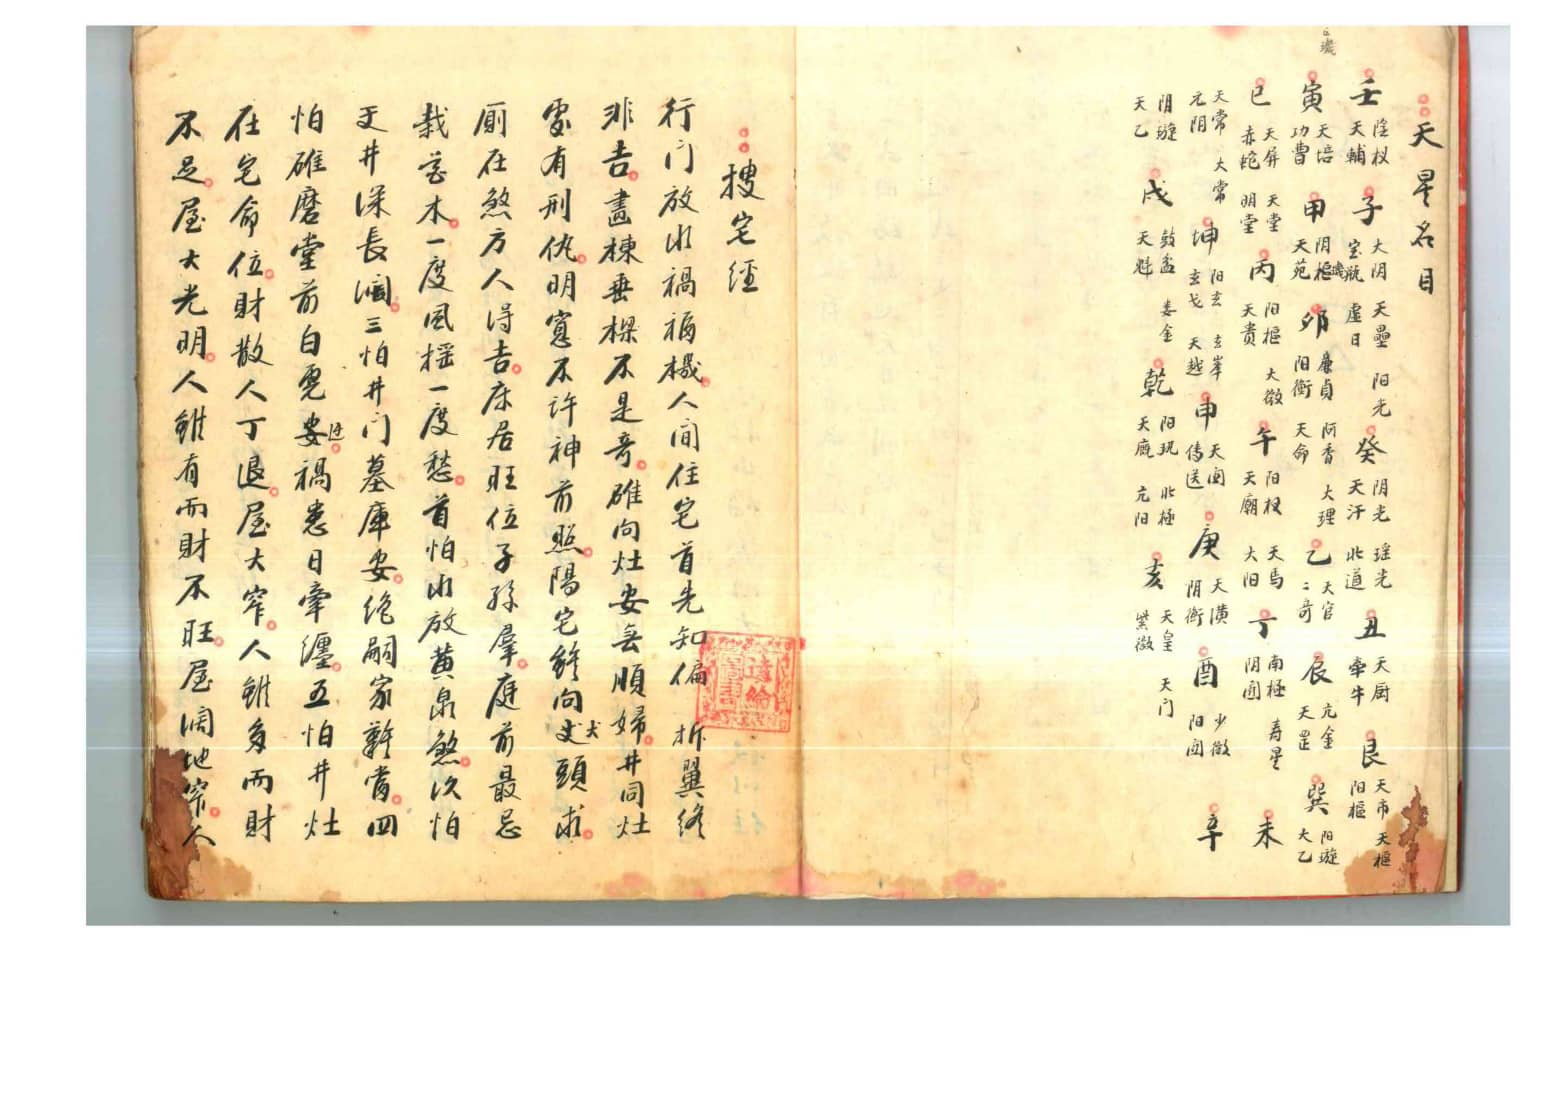 天星名目
壬 陰权 天輔 子 大阴 宝瓶 天壘 虛日 阳光 癸 阴光 天汗 瑶光 北道 丑 天厨 牵牛 艮 天市 阳樞 天樞
寅 天培 功曹 甲 阴樞 天苑 卯 廉貞 阳衡 阿香 天命 大理 乙 天官 二奇 辰 亢金 天罡 巽 阳璇 大乙
巳 天屏 赤蛇 天堂 明堂 丙 阳樞 天贵 大微 午 阳权 天廟 天馬 大阳 丁 南極 阴囯 寿星 未
天常 元阴 大常 坤 阳玄 玄戈 玄峯 天越 申 天囯 傳送 庚 天潢 阴衡 酉 少微 阳囯 辛
阴璇 天乙 戌 鼓盆 天魁 娄金 乾 阳玑 天廐 北極 亢阳 亥 天皇 紫微 天门
搜宅經
行门放水禍福機人间住宅首先知偏 折翼終
非吉畫棟垂樑不是奇碓向灶安無順婦井同灶
處有刑仇明窓不許神前照陽宅終向丈犬頭求
厠在煞方人得吉床居旺位子孫羣庭前最忌
栽苍木一度風摇一度愁首怕水放黄泉煞次怕
天井深長濶三怕井门墓庫安绝嗣家難當四
怕碓磨堂前白虎安迍禍患日牽纏五怕井灶
在宅命位財散人丁退屋大窄人雖多而財
不足屋大光明人雖有而財不旺屋濶地窄人